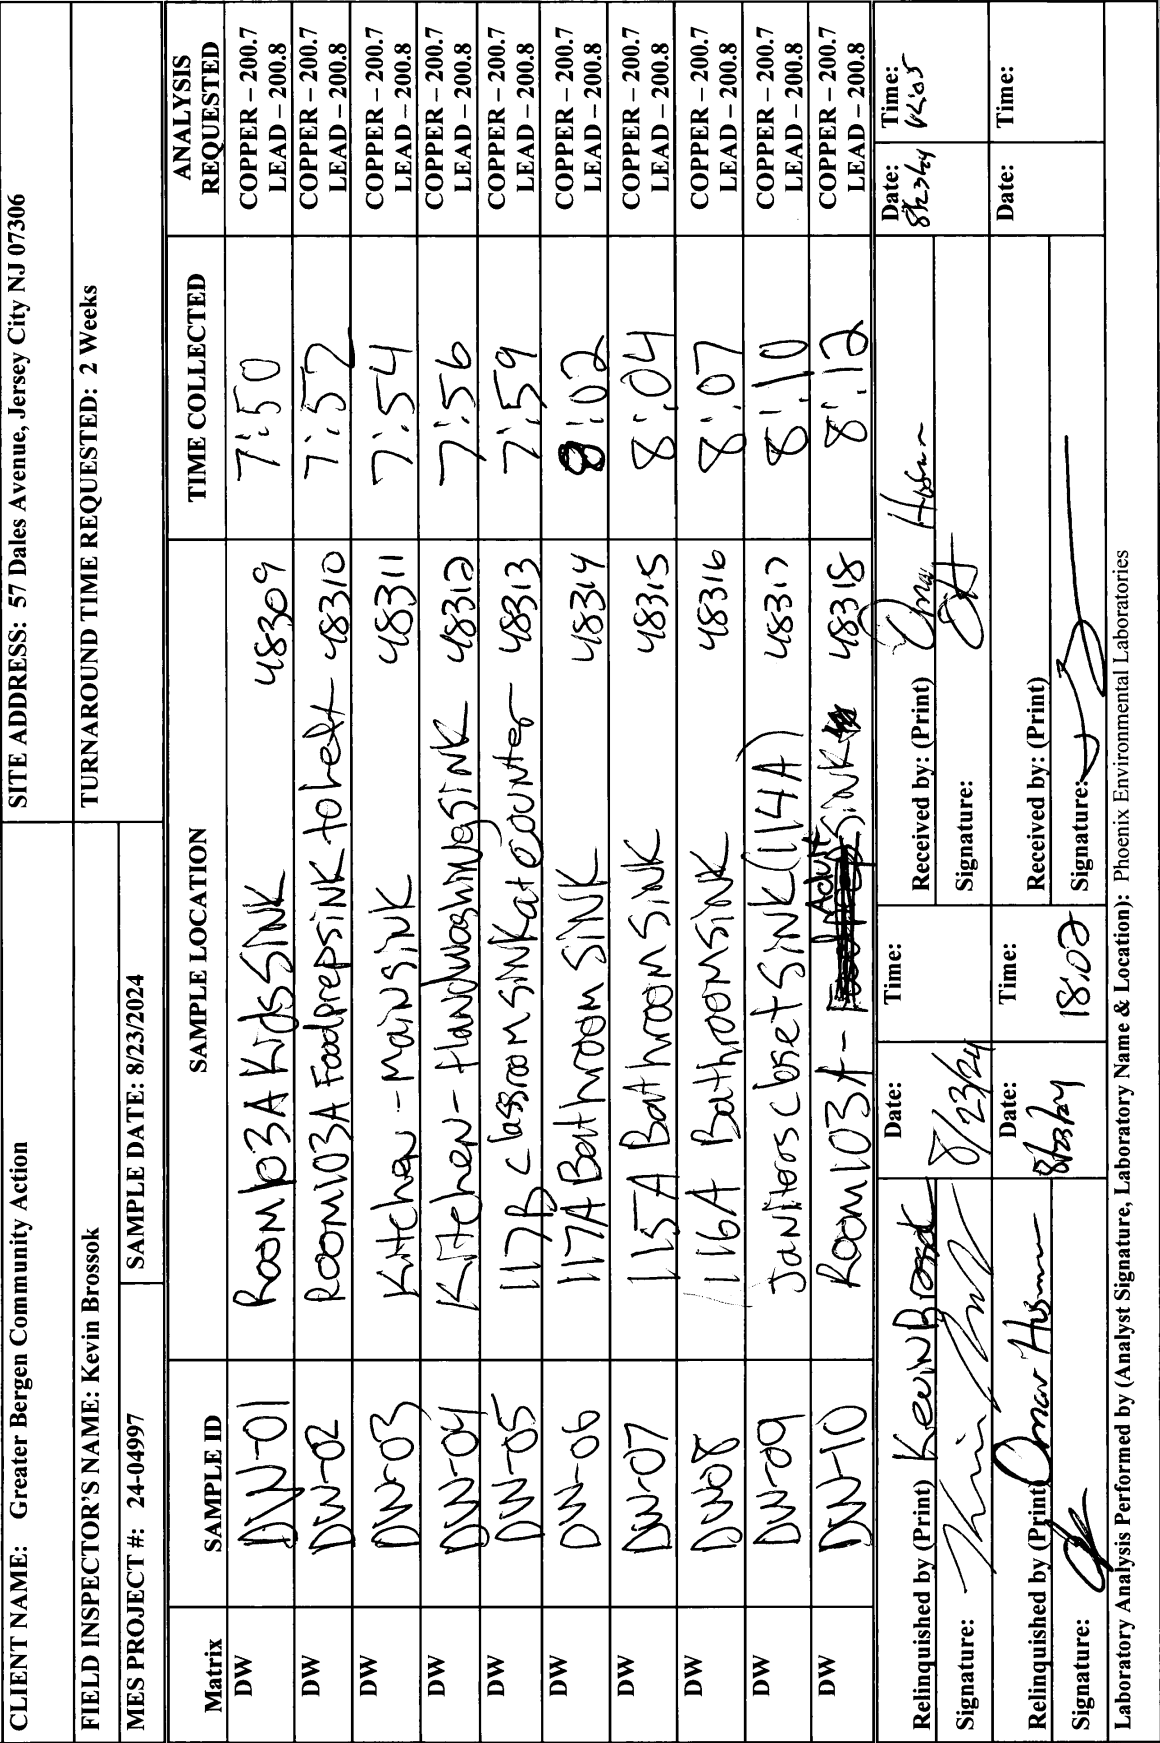 CLIENT NAME: Greater Bergen Community Action
SITE ADDRESS: 57 Dales Avenue, Jersey City NJ 07306
FIELD INSPECTOR'S NAME: Kevin Brossok
TURNAROUND TIME REQUESTED: 2 Weeks
MES PROJECT #: 24-04997
SAMPLE DATE: 8/23/2024
Matrix SAMPLE ID SAMPLE LOCATION TIME COLLECTED ANALYSIS REQUESTED
DW DW-01 Room 103A Kids Sink 48309 7:50 COPPER – 200.7
LEAD – 200.8
DW DW-02 Room 103A Food prep sink to left 48310 7:52 COPPER – 200.7
LEAD – 200.8
DW DW-03 Kitchen - Main sink 48311 7:54 COPPER – 200.7
LEAD – 200.8
DW DW-04 Kitchen - Handwashing sink 48312 7:56 COPPER – 200.7
LEAD – 200.8
DW DW-05 117B Classroom sink at counter 48313 7:59 COPPER – 200.7
LEAD – 200.8
DW DW-06 117A Bathroom sink 48314 8:02 COPPER – 200.7
LEAD – 200.8
DW DW-07 115A Bathroom sink 48315 8:04 COPPER – 200.7
LEAD – 200.8
DW DW08 116A Bathroom sink 48316 8:07 COPPER – 200.7
LEAD – 200.8
DW DW-09 Janitors closet sink (114A) 48317 8:10 COPPER – 200.7
LEAD – 200.8
DW DW-10 Room 103A - Adult sink 48318 8:12 COPPER – 200.7
LEAD – 200.8
Relinquished by (Print) Kevin Brossok
Date: 8/23/24
Time:
Received by: (Print) Omar
Date: 8/23/24
Time:
Signature:
Signature:
Relinquished by (Print) Omar
Date: 8/23/24
Time: 18:02
Received by: (Print)
Date:
Time:
Signature:
Signature:
Laboratory Analysis Performed by (Analyst Signature, Laboratory Name & Location): Phoenix Environmental Laboratories